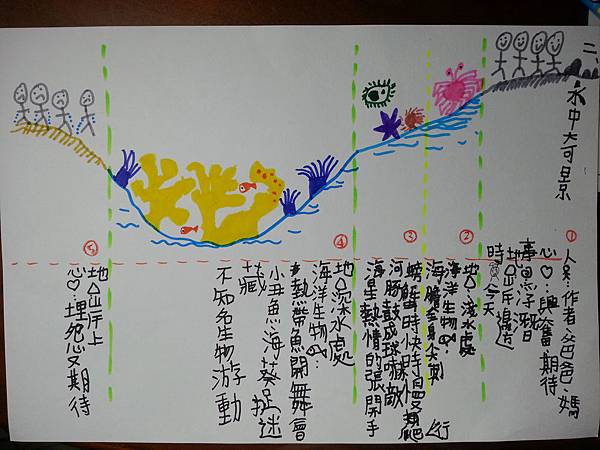 二、
水中大可景
① 人名:作者、爸爸、媽
心♡:興奮期待
事:魚浮潛日
地△:岸邊
時◯:今天
②
地△:淺水處
海洋生物
海膽全身尖刺
③
螃蟹時快時慢爬行
河豚鼓成球嚇敵
海星熱情的張開手
④
地△:深水處
海洋生物
*熱帶魚開舞會
小丑魚海葵捉迷藏
不知名生物游動
⑤
地△:岸上
心♡:埋怨又期待